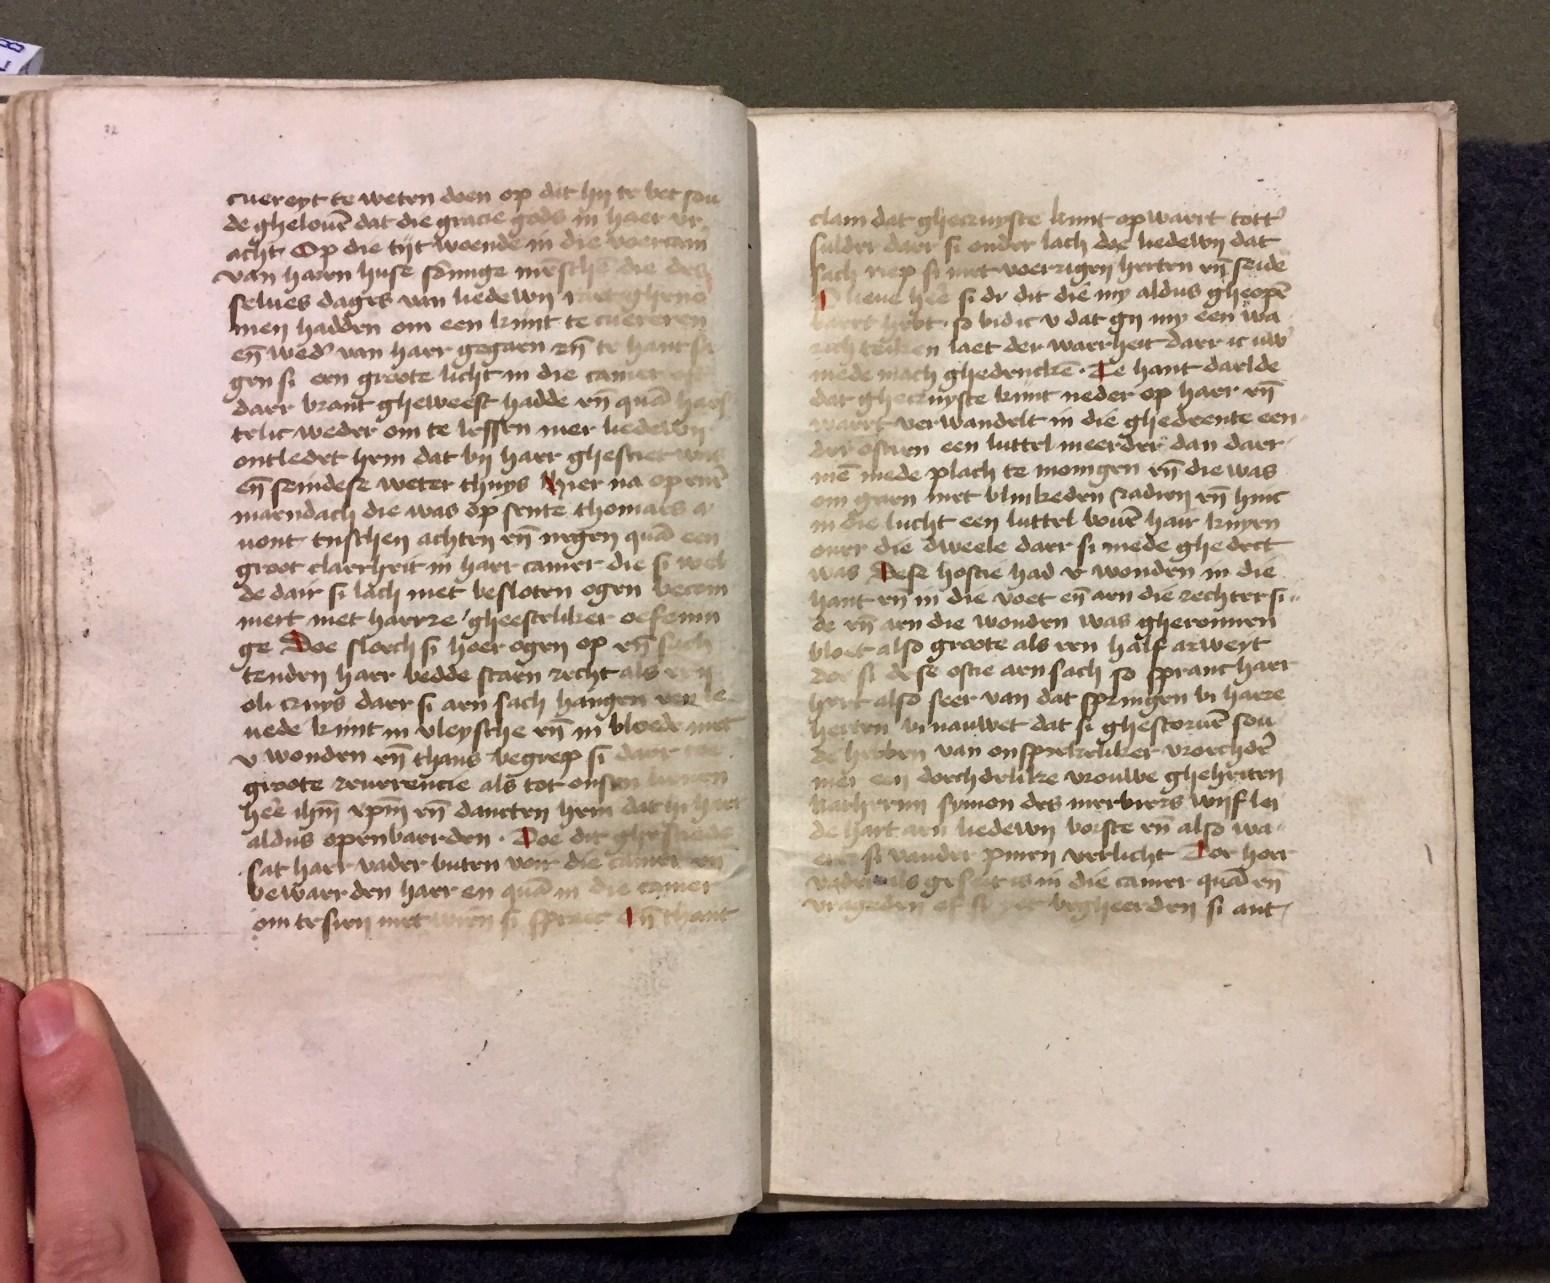 32
cuereyt te weten doen op dit hij te bet sou
de ghelouē dat die gracie gods in haer vr
acht. Op die tijt woende in die voercam
van haren huse sōmige mēschē die des
selues dages van liedewij
men hadden om een kijnt te cuereren
eñ wed' van haer gegaen eñ te hant sa
gen si een groote licht in die camer
daer brant gheweest hadde eñ quā haes
telic weder om te lessen mer liedewij
ontledet hem dat bij haer ghesciet was
eñ seindese weter thuys Hier na op enē
maendach die was op sente thomaes a
uont tusschen achten eñ negen quā een
groot claerheit in haer camer die si wel
de dair si lach met besloten ogen becom
mert met haerre gheesteliker oefenin
ge Doe sloech si hoer ogen op eñ sach
tenden haer bedde staen recht als een
oli cruys daer si aen sach hangen een le
uede kijnt in vleysche eñ in bloede met
v wonden eñ thans begreep si daer toe
groote reuerencie als tot onsen lieuen
heē ihm̄ xpm̄ eñ dancten hem dat hi haer
aldus openbaerden. Doe dit ghesciede
sat haer vader buten voir die camer eñ
bewaerden haer en quā in die camer
om te sien met wien si spraec Eñ thant
clam dat ghecruyste kijnt opwaert tott'
sulder daer si onder lach doe liedewij dat
sach riep si met voerzigen herten eñ seide
O lieue heē si dr dit diē my aldus gheopē
baert hebt. so bid ic v dat gij my een wa
rich teiken laet der waerheit daer ic uw'
mede mach ghedencken. Te hant daelde
dat ghecruyste kijnt neder op haer eñ
waert verwandelt in die ghedeente een
der ostien een luttel meerder dan daer
mē mede plach te monigen eñ die was
om gaen met blinkeden radien eñ hinc
in die lucht een luttel bouē hair knyen
ouer die dweele daer si mede ghedect
was Dese hostie had v wonden in die
hant eñ in die voet eñ aen die rechter si
de eñ aen die wonden was gheronnen
bloet also groote als een half arweyt
doe si dese ostie aen sach so spranc haer
hert also seer van dat springen bi haere
herten binauwet dat si ghestoruē sou
de hebben van onsprekeliker vroechdē
mer een doechdelike vrouwe gheheiten
katherijn symon des mervirs wijf lei
de hant aen liedewij borste eñ also wa
ert si vander pinen verlicht Doe hoer
vader als geseit is in die camer quā eñ
vrageden of si yet begheerden si ant